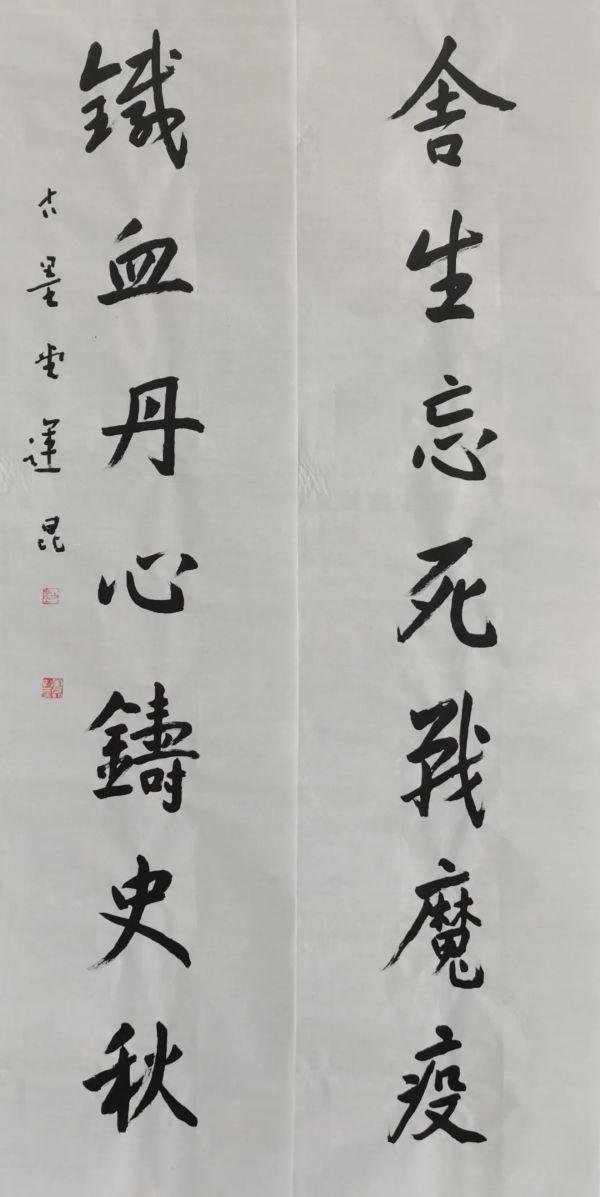 舍生忘死戰魔疫
鐵血丹心鑄史秋
墨堂運昆